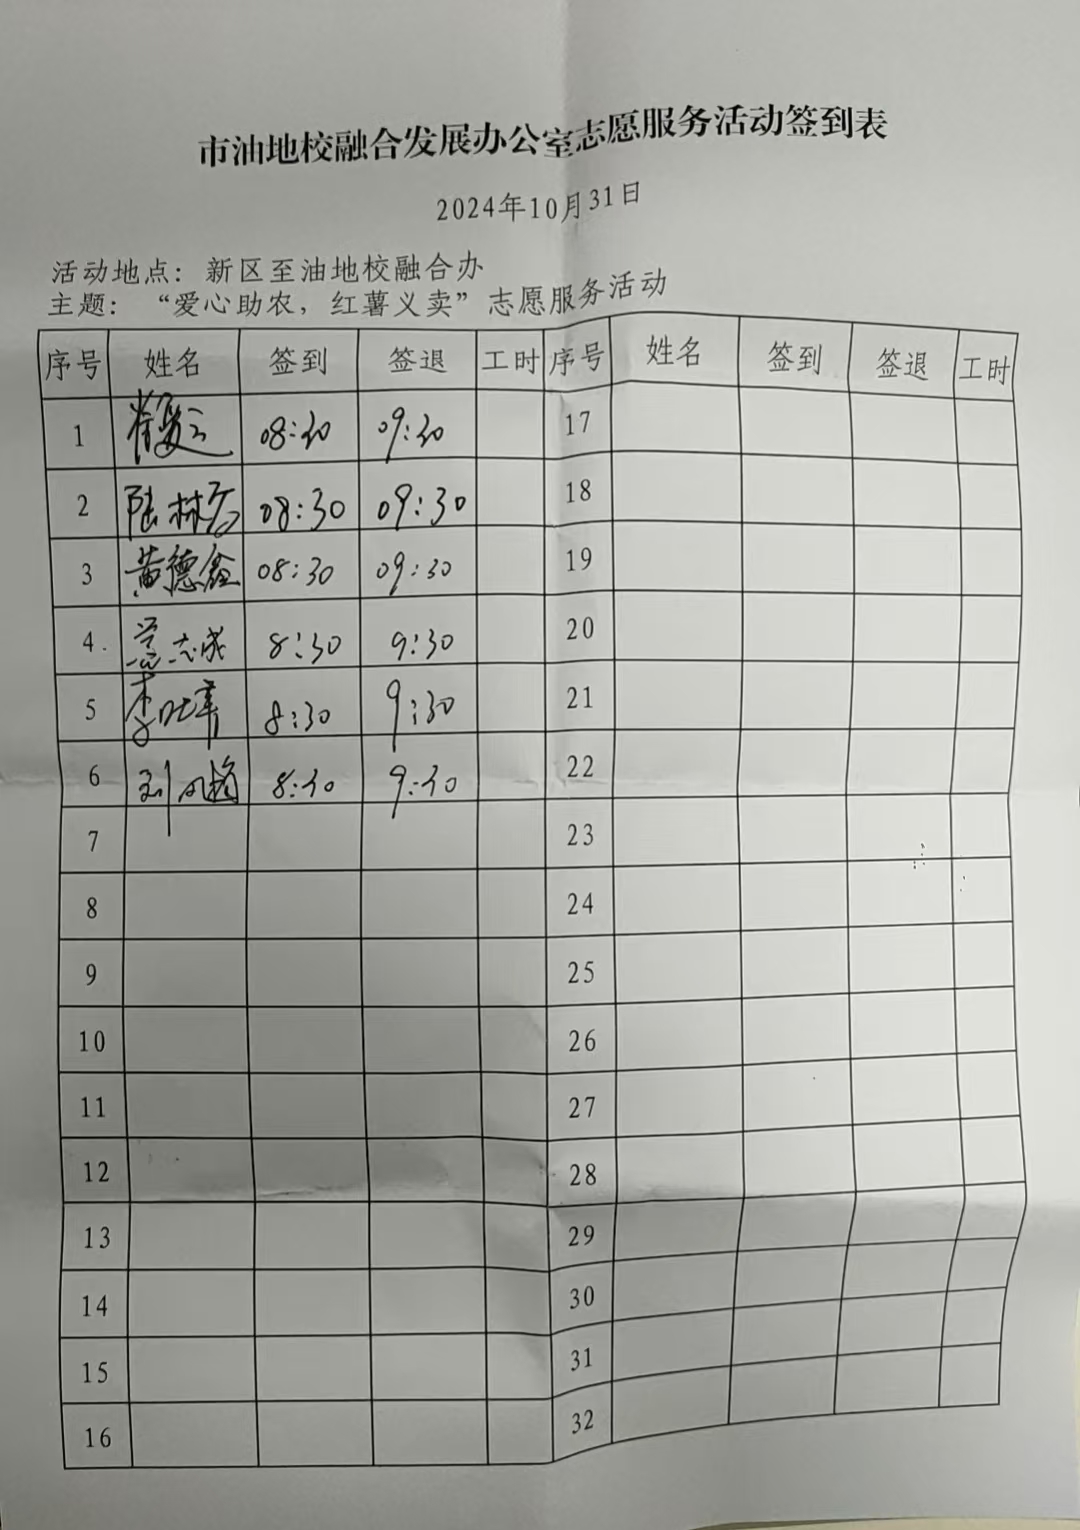 市油地校融合发展办公室志愿服务活动签到表
2024年10月31日
活动地点：新区至油地校融合办
主题：“爱心助农，红薯义卖”志愿服务活动
序号 姓名 签到 签退 工时 序号 姓名 签到 签退 工时
1 08:30 09:30 17
2 陆林 08:30 09:30 18
3 黄德鑫 08:30 09:30 19
4 志成 8:30 9:30 20
5 李 8:30 9:30 21
6 刘 8:30 9:30 22
7 23
8 24
9 25
10 26
11 27
12 28
13 29
14 30
15 31
16 32